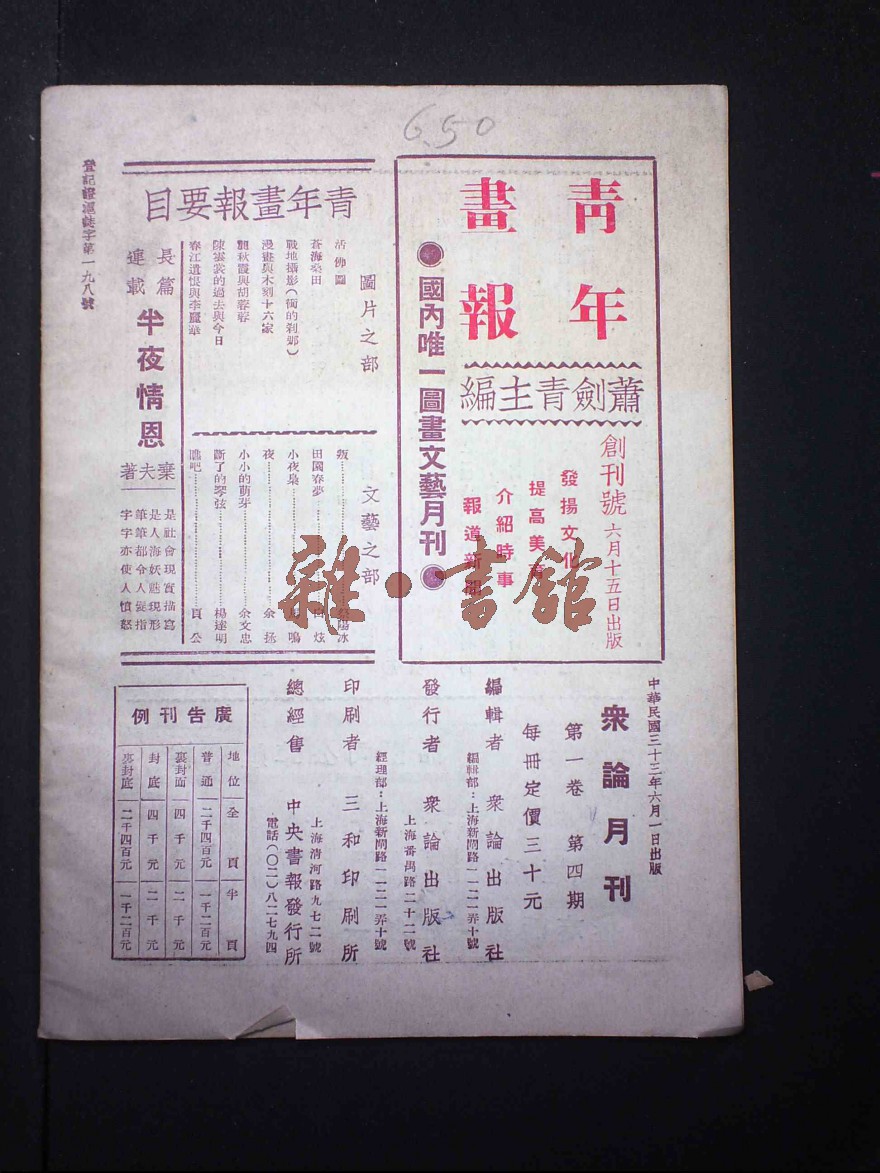 650
青年
畫報
蕭劍青主編
創刊號 六月十五日出版
發揚文化
提高美育
介紹時事
報道新聞
國內唯一圖畫文藝月刊
青年畫報要目
圖片之部
活佛圖
蒼海桑田
戰地攝影(獨的剎鄉)
漫畫與木刻十六家
龔秋霞與胡蓉蓉
陳雲裳的過去與今日
春江遺恨與李麗華
文藝之部
叛
田園春夢
小夜梟 鳴
夜 余拯
小小的萌芽 余文忠
斷了的琴弦 楊達明
瞧吧 頁公
長篇連載
半夜情恩
棄夫著
是社會現實描寫
是人海妖魔現形
筆筆都令人髮指
字字亦使人憤怒
登記證滬誌字第一九八號
中華民國三十三年六月一日出版
衆論月刊
第一卷 第四期
每冊定價三十元
編輯者 衆論出版社
編輯部:上海新閘路一一二一弄十號
發行者 衆論出版社
上海番禺路二十二號
經理部:上海新閘路一一二一弄十號
印刷者 三和印刷所
上海清河路九七二號
總經售 中央書報發行所
電話(〇二)八二七九四
廣告刊例
地位 全頁 半頁
普通 二千四百元 一千二百元
裏封面 四千元 二千元
封底 四千元 二千元
裏封底 二千四百元 一千二百元
雜·書館